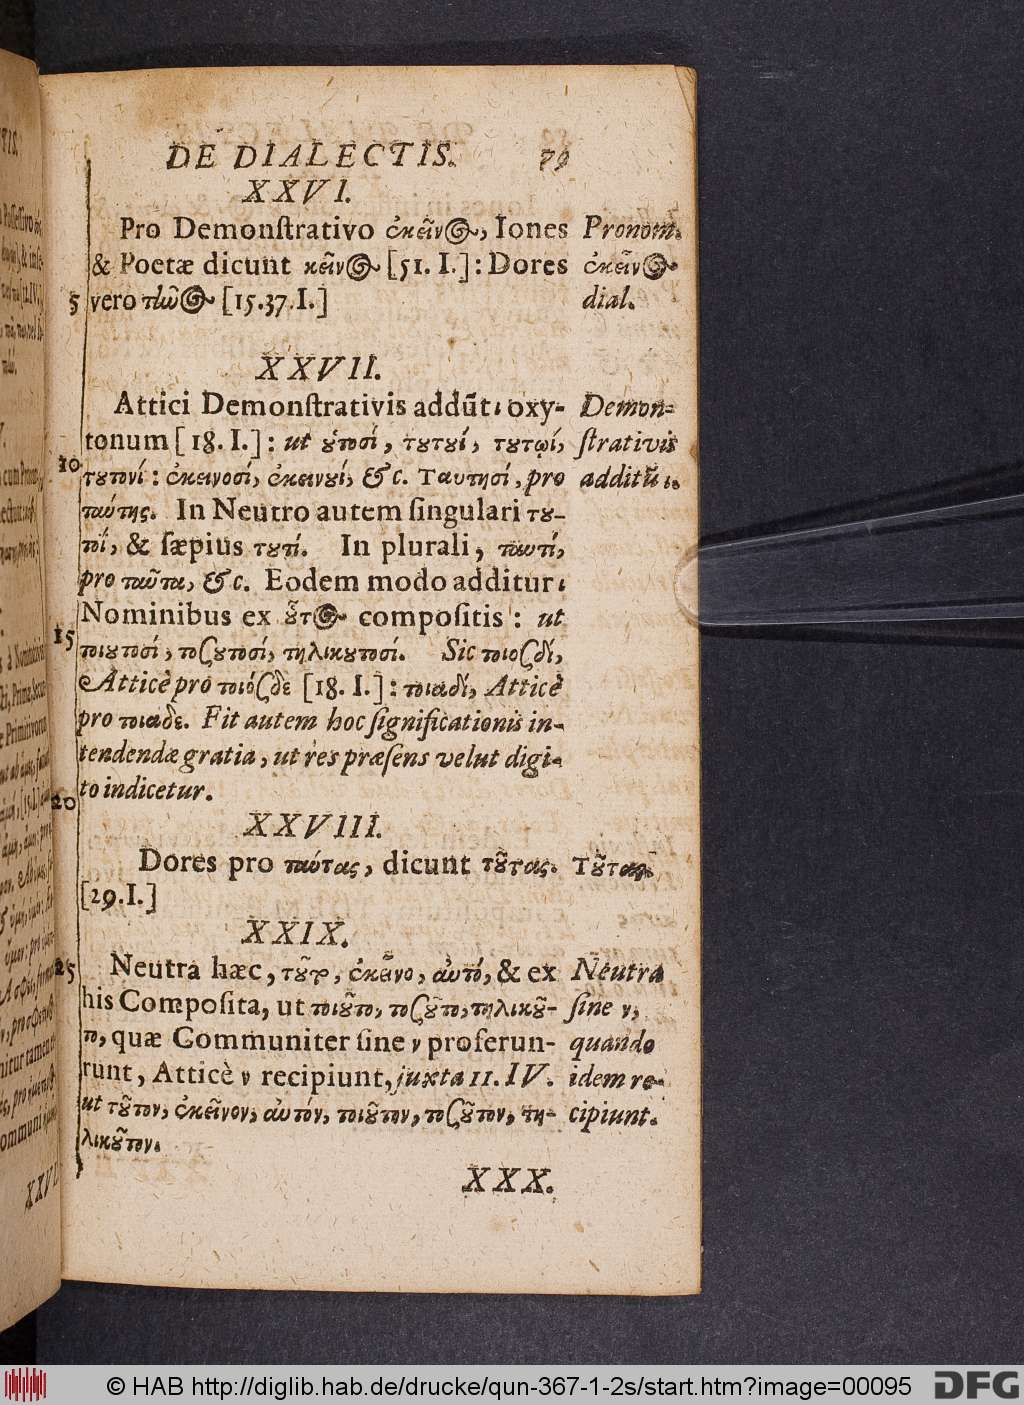 DE DIALECTIS. 79
XXVI.
Pro Demonſtrativo ἐκεῖνος, Iones
& Poetæ dicunt κεῖνος [51. I.]: Dores
5 vero τῆνος [15.37.I.]
Pronom.
ἐκεῖνος
dial.
XXVII.
Attici Demonſtrativis addũt ι oxy-
tonum [18. I.]: ut οὑτοσί, τουτουί, τουτῳί,
10 τουτονί: ἐκεινοσί, ἐκεινουί, &c. Ταυτησί, pro
ταύτης. In Neutro autem ſingulari του-
τοΐ, & ſæpius τουτί. In plurali, ταυτί,
pro ταῦτα, &c. Eodem modo additur ι
Nominibus ex οὗτος compoſitis: ut
15 τοιουτοσί, τοσουτοσί, τηλικουτοσί. Sic τοιοσδί,
Atticè pro τοιόσδε [18. I.]: τοιαδί, Atticè
pro τοιαδε. Fit autem hoc ſignificationis in-
tendendæ gratia, ut res præſens velut digi-
20 to indicetur.
Demon-
ſtrativis
additũ ι.
XXVIII.
Dores pro ταύτας, dicunt τούτας.
[29.I.]
Τούτας.
XXIX.
25 Neutra hæc, τοῦτο, ἐκεῖνο, αὐτό, & ex
his Compoſita, ut τοιοῦτο, τοσοῦτο, τηλικοῦ-
το, quæ Communiter ſine ν proferun-
runt, Atticè ν recipiunt, juxta 11. IV.
ut τοῦτον, ἐκεῖνον, αὐτόν, τοιοῦτον, τοσοῦτον, τη-
λικοῦτον.
Neutra
ſine ν,
quando
idem re-
cipiunt.
XXX.
© HAB http://diglib.hab.de/drucke/qun-367-1-2s/start.htm?image=00095 DFG